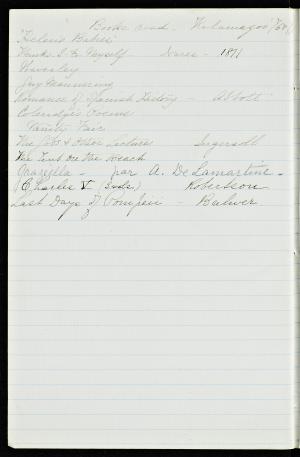 Books read. Kalamazoo
"Helen's Babies"
Hawks I & Myself Dates - 1871
Waverley
Guy Mannering
Romance of Spanish History - Abbott
Coleridge's Poems
Vanity Fair
The Lecture Ingersoll
The Tent On The Beach
Graziella - par A. De Lamartine -
Charles V (3 vols.) Robertson
Last Days of Pompeii - Bulwer